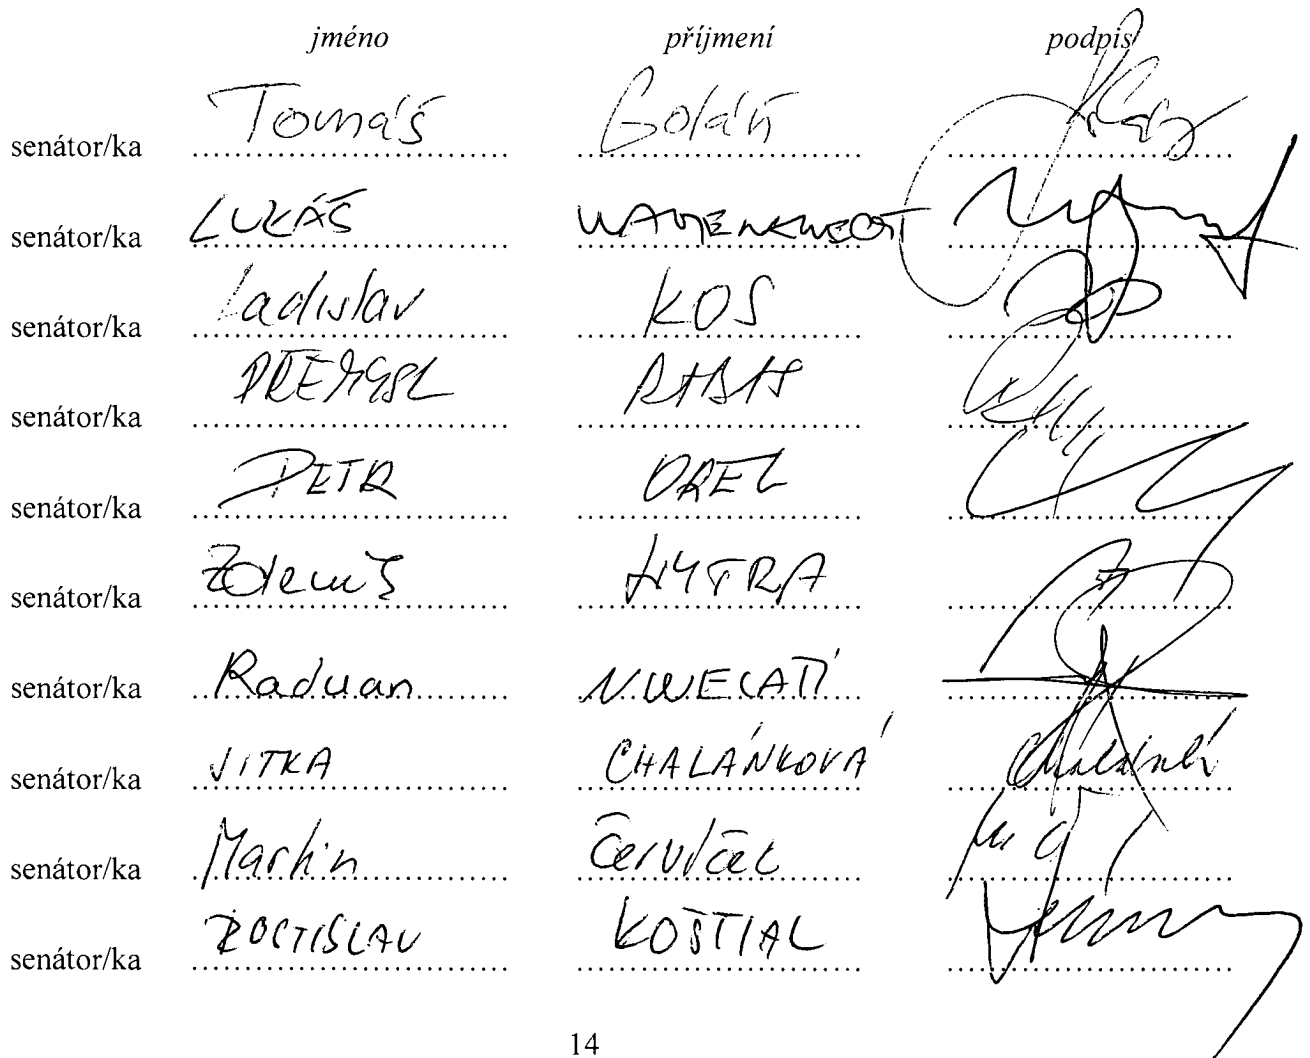 jméno příjmení podpis
senátor/ka Tomáš Goláň
senátor/ka LUKÁŠ WAGENKNECHT
senátor/ka Ladislav KOS
senátor/ka PŘEMYSL RABAS
senátor/ka PETR OREL
senátor/ka HYTRA
senátor/ka Raduan NWELATI
senátor/ka JITKA CHALÁNKOVÁ
senátor/ka Martin Červíček
senátor/ka ROSTISLAV KOŠTIAL
14